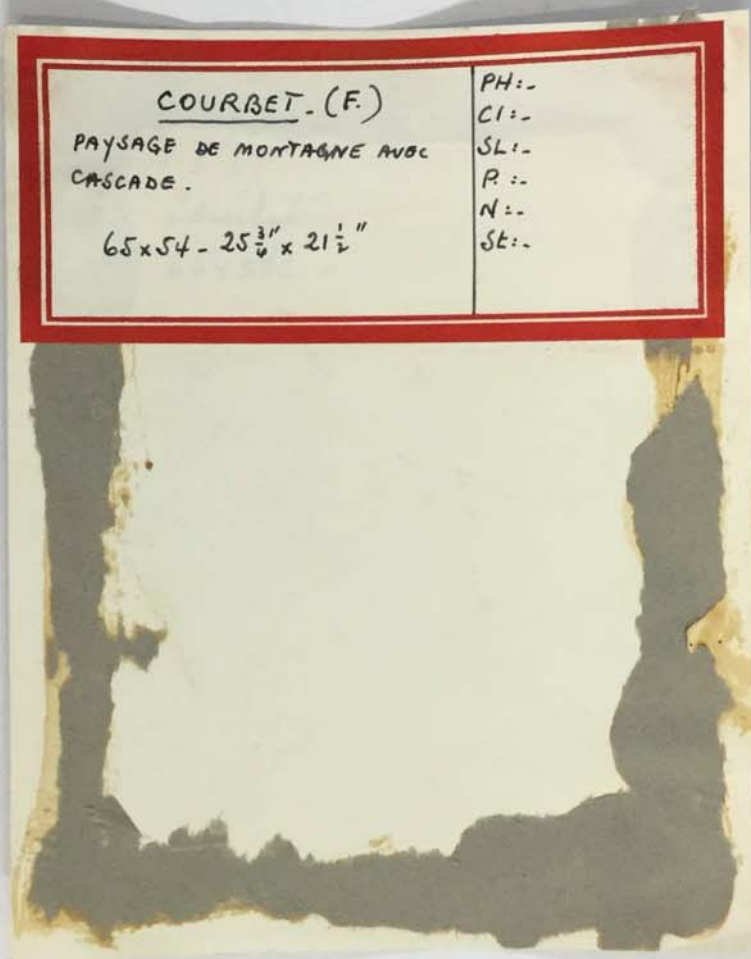 COURBET. (F.)
PAYSAGE DE MONTAGNE AVEC
CASCADE.
65x54 - 25 3/4" x 21 1/2"
PH:-
Cl:-
SL:-
P. :-
N :-
St:-